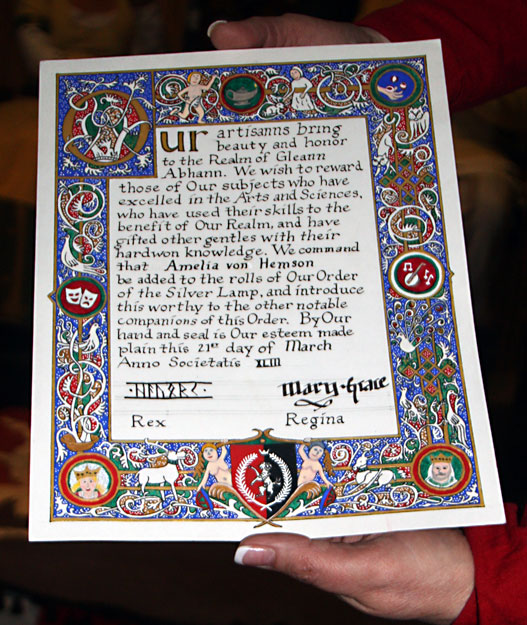 Our artisanns bring
beauty and honor
to the Realm of Gleann
Abhann. We wish to reward
those of Our subjects who have
excelled in the Arts and Sciences,
who have used their skills to the
benefit of Our Realm, and have
gifted other gentles with their
hardwon knowledge. We command
that Amelia von Hemson
be added to the rolls of Our Order
of the Silver Lamp, and introduce
this worthy to the other notable
companions of this Order. By Our
hand and seal is Our esteem made
plain this 21st day of March
Anno Societatis XLIII
Mary-Grace
Rex Regina